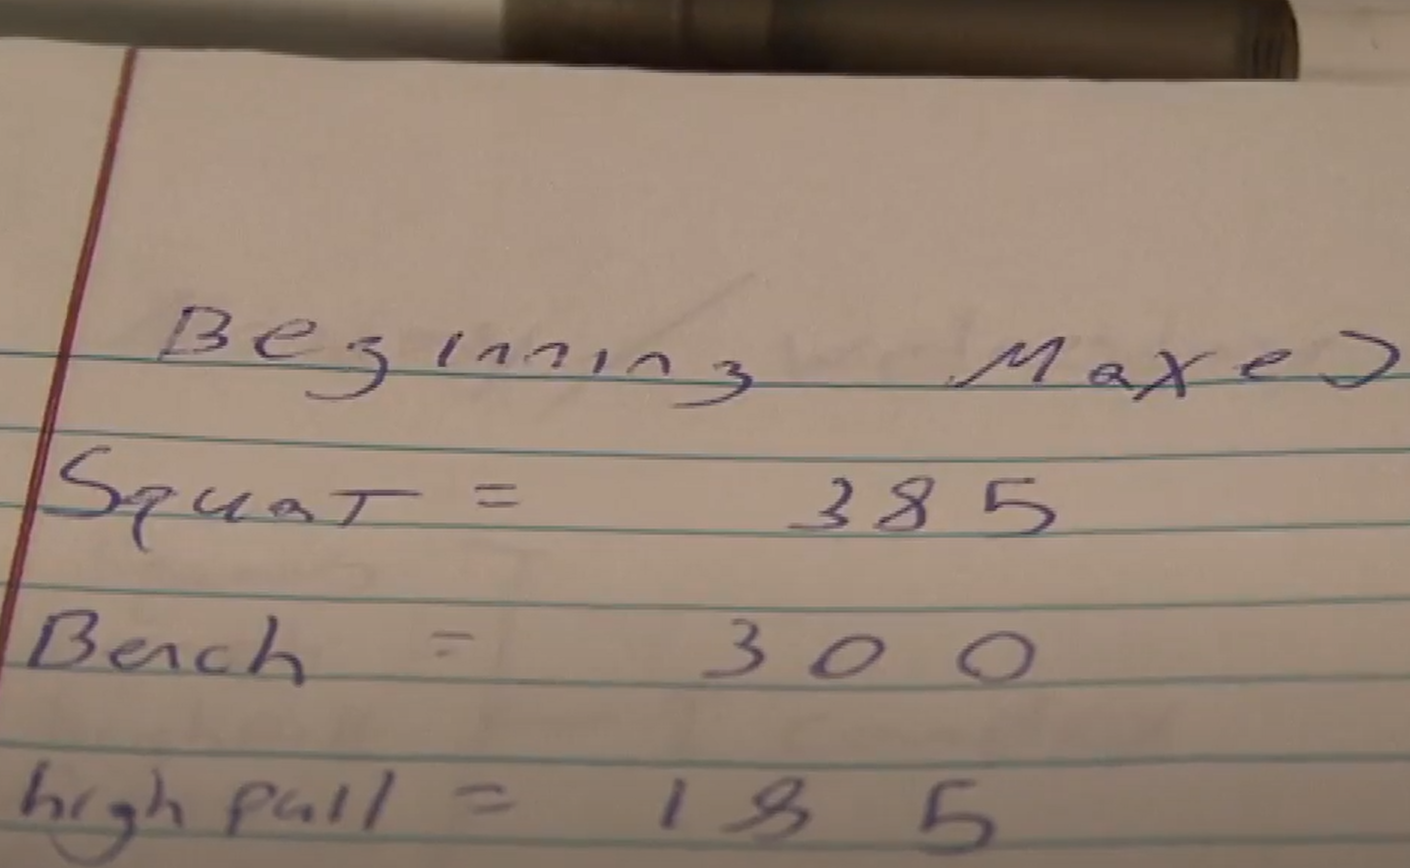 Beginning Maxes
Squat = 385
Bench = 300
high pull = 185